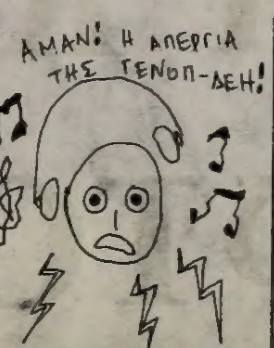 ΑΜΑΝ! Η ΑΠΕΡΓΙΑ
ΤΗΣ ΓΕΝΟΠ-ΔΕΗ!